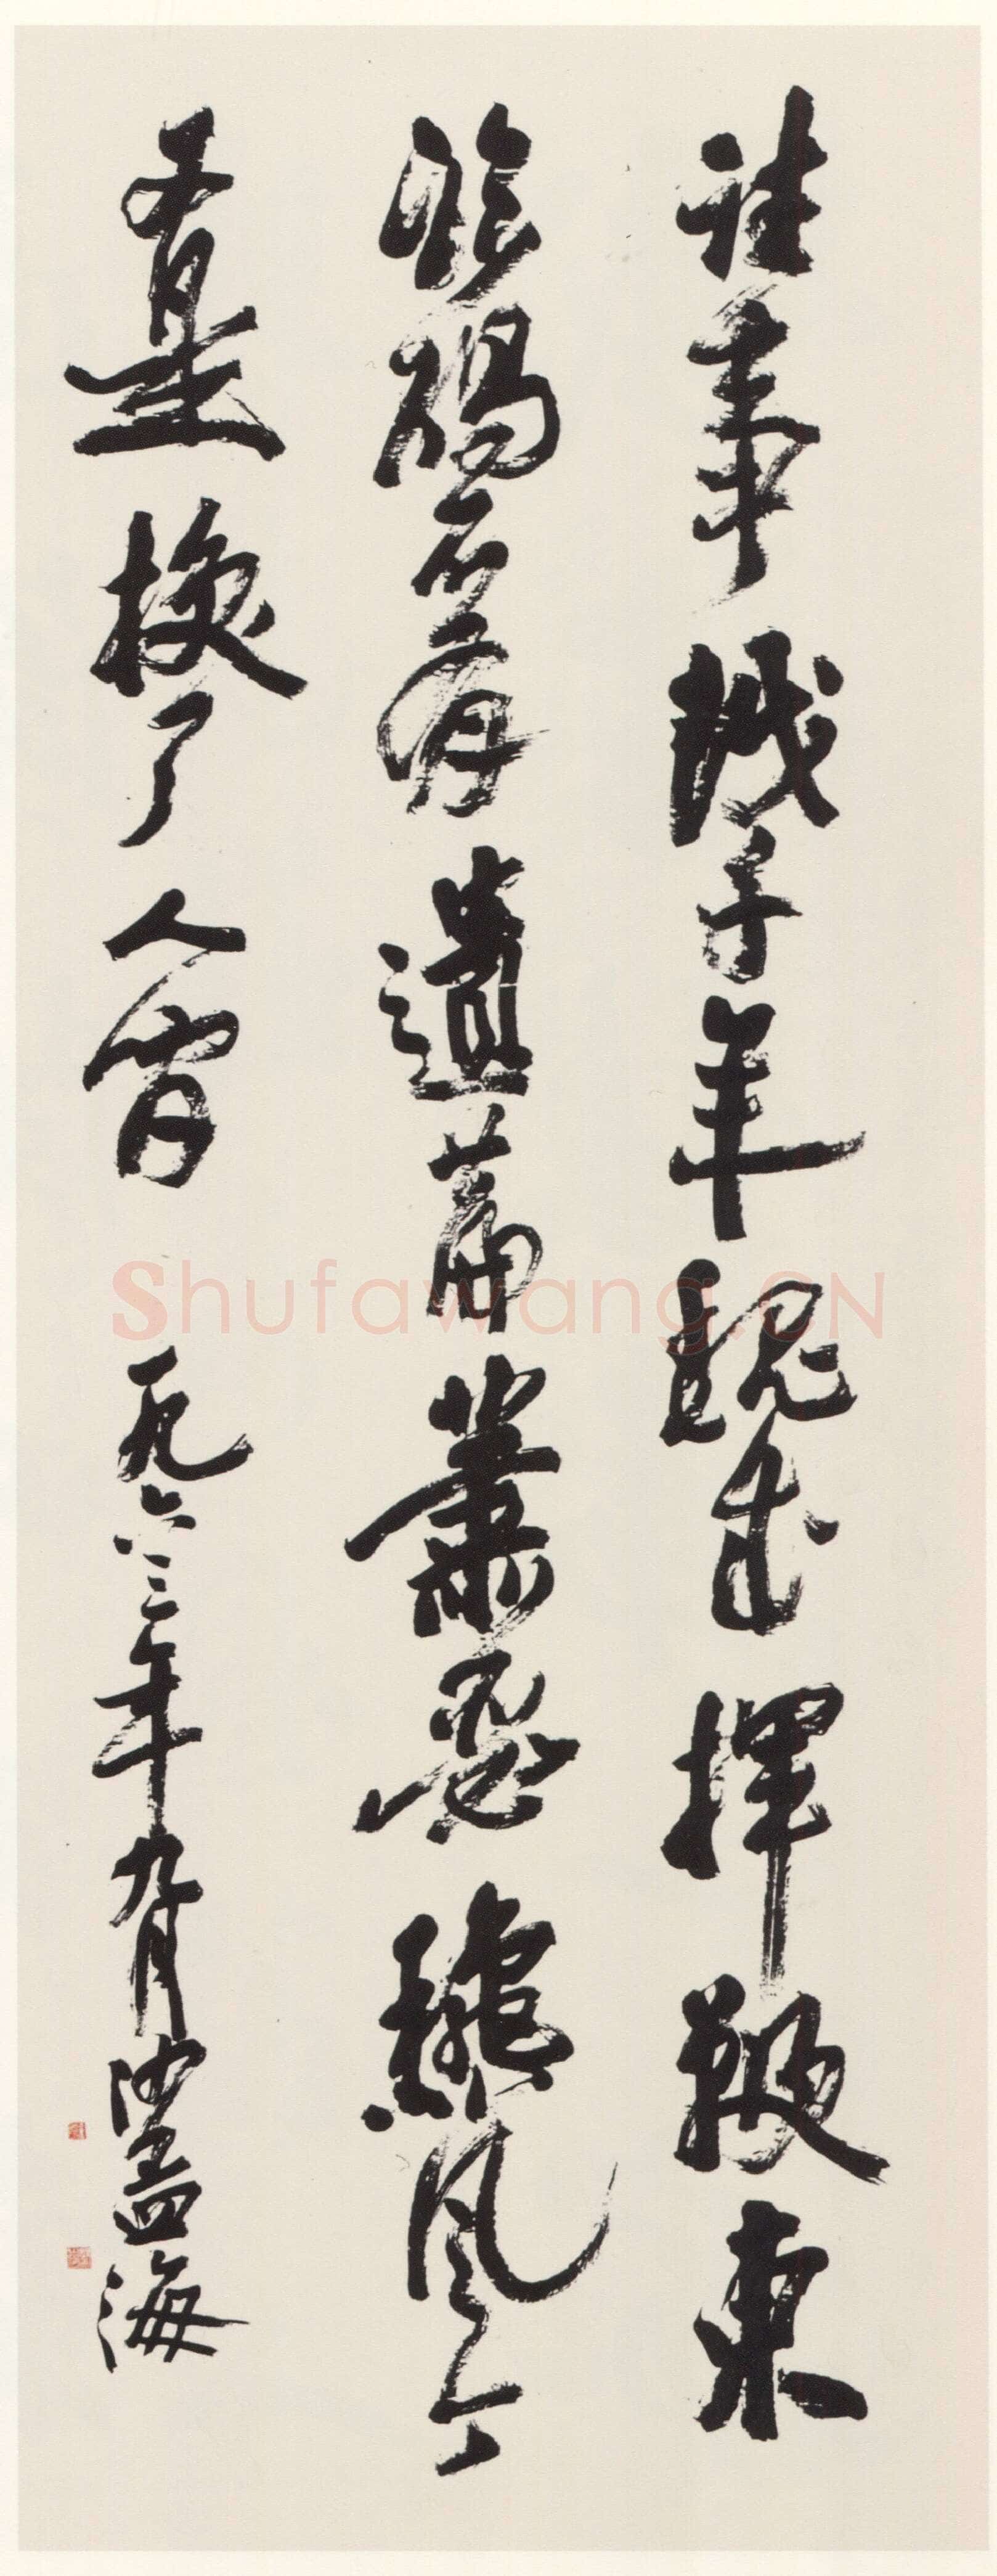 往事越千年魏武揮鞭東
臨碣石有遺篇蕭瑟龝风今
又是換了人間 一九六三年九月沙孟海
Shufawang.CN